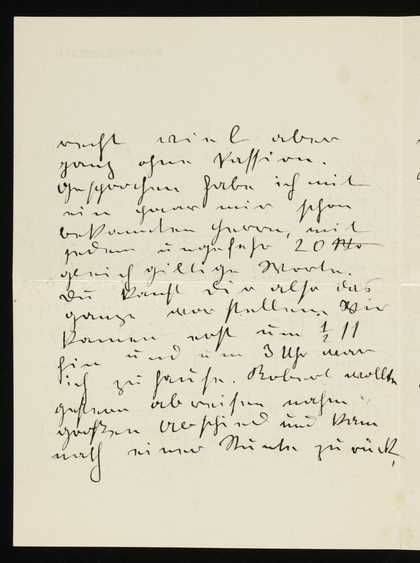 recht viel aber
ganz ohne Passion.
Gesprochen habe ich mit
ein paar mir schon
bekannten Herrn, mit
jedem ungefehr 20
gleichgiltige Worte.
Du kanst dir also das
ganze vorstellen. Wir
kamen erst um ½ 11
hin und um 3 Uhr war
ich zu hause. Robert wollte
gestern abreisen nahm
großen Abschied und kam
nach einer Stunde zurück,